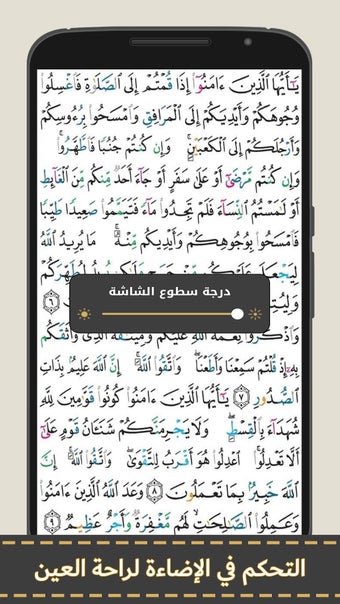 يَـٰٓأَيُّهَا ٱلَّذِينَ ءَامَنُوٓا۟ إِذَا قُمْتُمْ إِلَى ٱلصَّلَوٰةِ فَٱغْسِلُوا۟
وُجُوهَكُمْ وَأَيْدِيَكُمْ إِلَى ٱلْمَرَافِقِ وَٱمْسَحُوا۟ بِرُءُوسِكُمْ
وَأَرْجُلَكُمْ إِلَى ٱلْكَعْبَيْنِ ۚ وَإِن كُنتُمْ جُنُبًا فَٱطَّهَّرُوا۟ ۚ
وَإِن كُنتُم مَّرْضَىٰٓ أَوْ عَلَىٰ سَفَرٍ أَوْ جَآءَ أَحَدٌ مِّنكُم مِّنَ ٱلْغَآئِطِ
أَوْ لَـٰمَسْتُمُ ٱلنِّسَآءَ فَلَمْ تَجِدُوا۟ مَآءً فَتَيَمَّمُوا۟ صَعِيدًا طَيِّبًا
فَٱمْسَحُوا۟ بِوُجُوهِكُمْ وَأَيْدِيكُم مِّنْهُ ۚ مَا يُرِيدُ ٱللَّهُ
لِيَجْعَلَ عَلَيْكُم مِّنْ حَرَجٍ وَلَـٰكِن يُرِيدُ لِيُطَهِّرَكُمْ
درجة سطوع الشاشة
٦
وَٱذْكُرُوا۟ نِعْمَةَ ٱللَّهِ عَلَيْكُمْ وَمِيثَـٰقَهُ ٱلَّذِى وَاثَقَكُم
بِهِۦٓ إِذْ قُلْتُمْ سَمِعْنَا وَأَطَعْنَا ۖ وَٱتَّقُوا۟ ٱللَّهَ ۚ إِنَّ ٱللَّهَ عَلِيمٌۢ بِذَاتِ
ٱلصُّدُورِ ٧ يَـٰٓأَيُّهَا ٱلَّذِينَ ءَامَنُوا۟ كُونُوا۟ قَوَّٰمِينَ لِلَّهِ
شُهَدَآءَ بِٱلْقِسْطِ ۖ وَلَا يَجْرِمَنَّكُمْ شَنَـَٔانُ قَوْمٍ عَلَىٰٓ
أَلَّا تَعْدِلُوا۟ ۚ ٱعْدِلُوا۟ هُوَ أَقْرَبُ لِلتَّقْوَىٰ ۖ وَٱتَّقُوا۟ ٱللَّهَ ۚ إِنَّ
ٱللَّهَ خَبِيرٌۢ بِمَا تَعْمَلُونَ ٨ وَعَدَ ٱللَّهُ ٱلَّذِينَ ءَامَنُوا۟
وَعَمِلُوا۟ ٱلصَّـٰلِحَـٰتِ ۙ لَهُم مَّغْفِرَةٌ وَأَجْرٌ عَظِيمٌ ٩
التحكم في الإضاءة لراحة العين